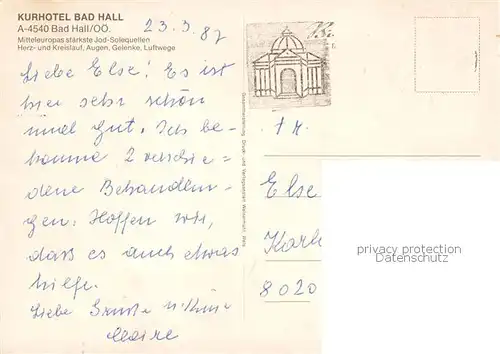 KURHOTEL BAD HALL
A-4540 Bad Hall/OÖ.
Mitteleuropas stärkste Jod-Solequellen
Herz- und Kreislauf, Augen, Gelenke, Luftwege
23.3.87
Liebe Else! Es ist
hier sehr schön
und gut. Ich be-
komme 2 verschie-
dene Behandlun-
gen. Hoffen wir,
daß es auch etwas
hilft.
Liebe Grüße u. Küsse
Else
8020
privacy protection
Datenschutz